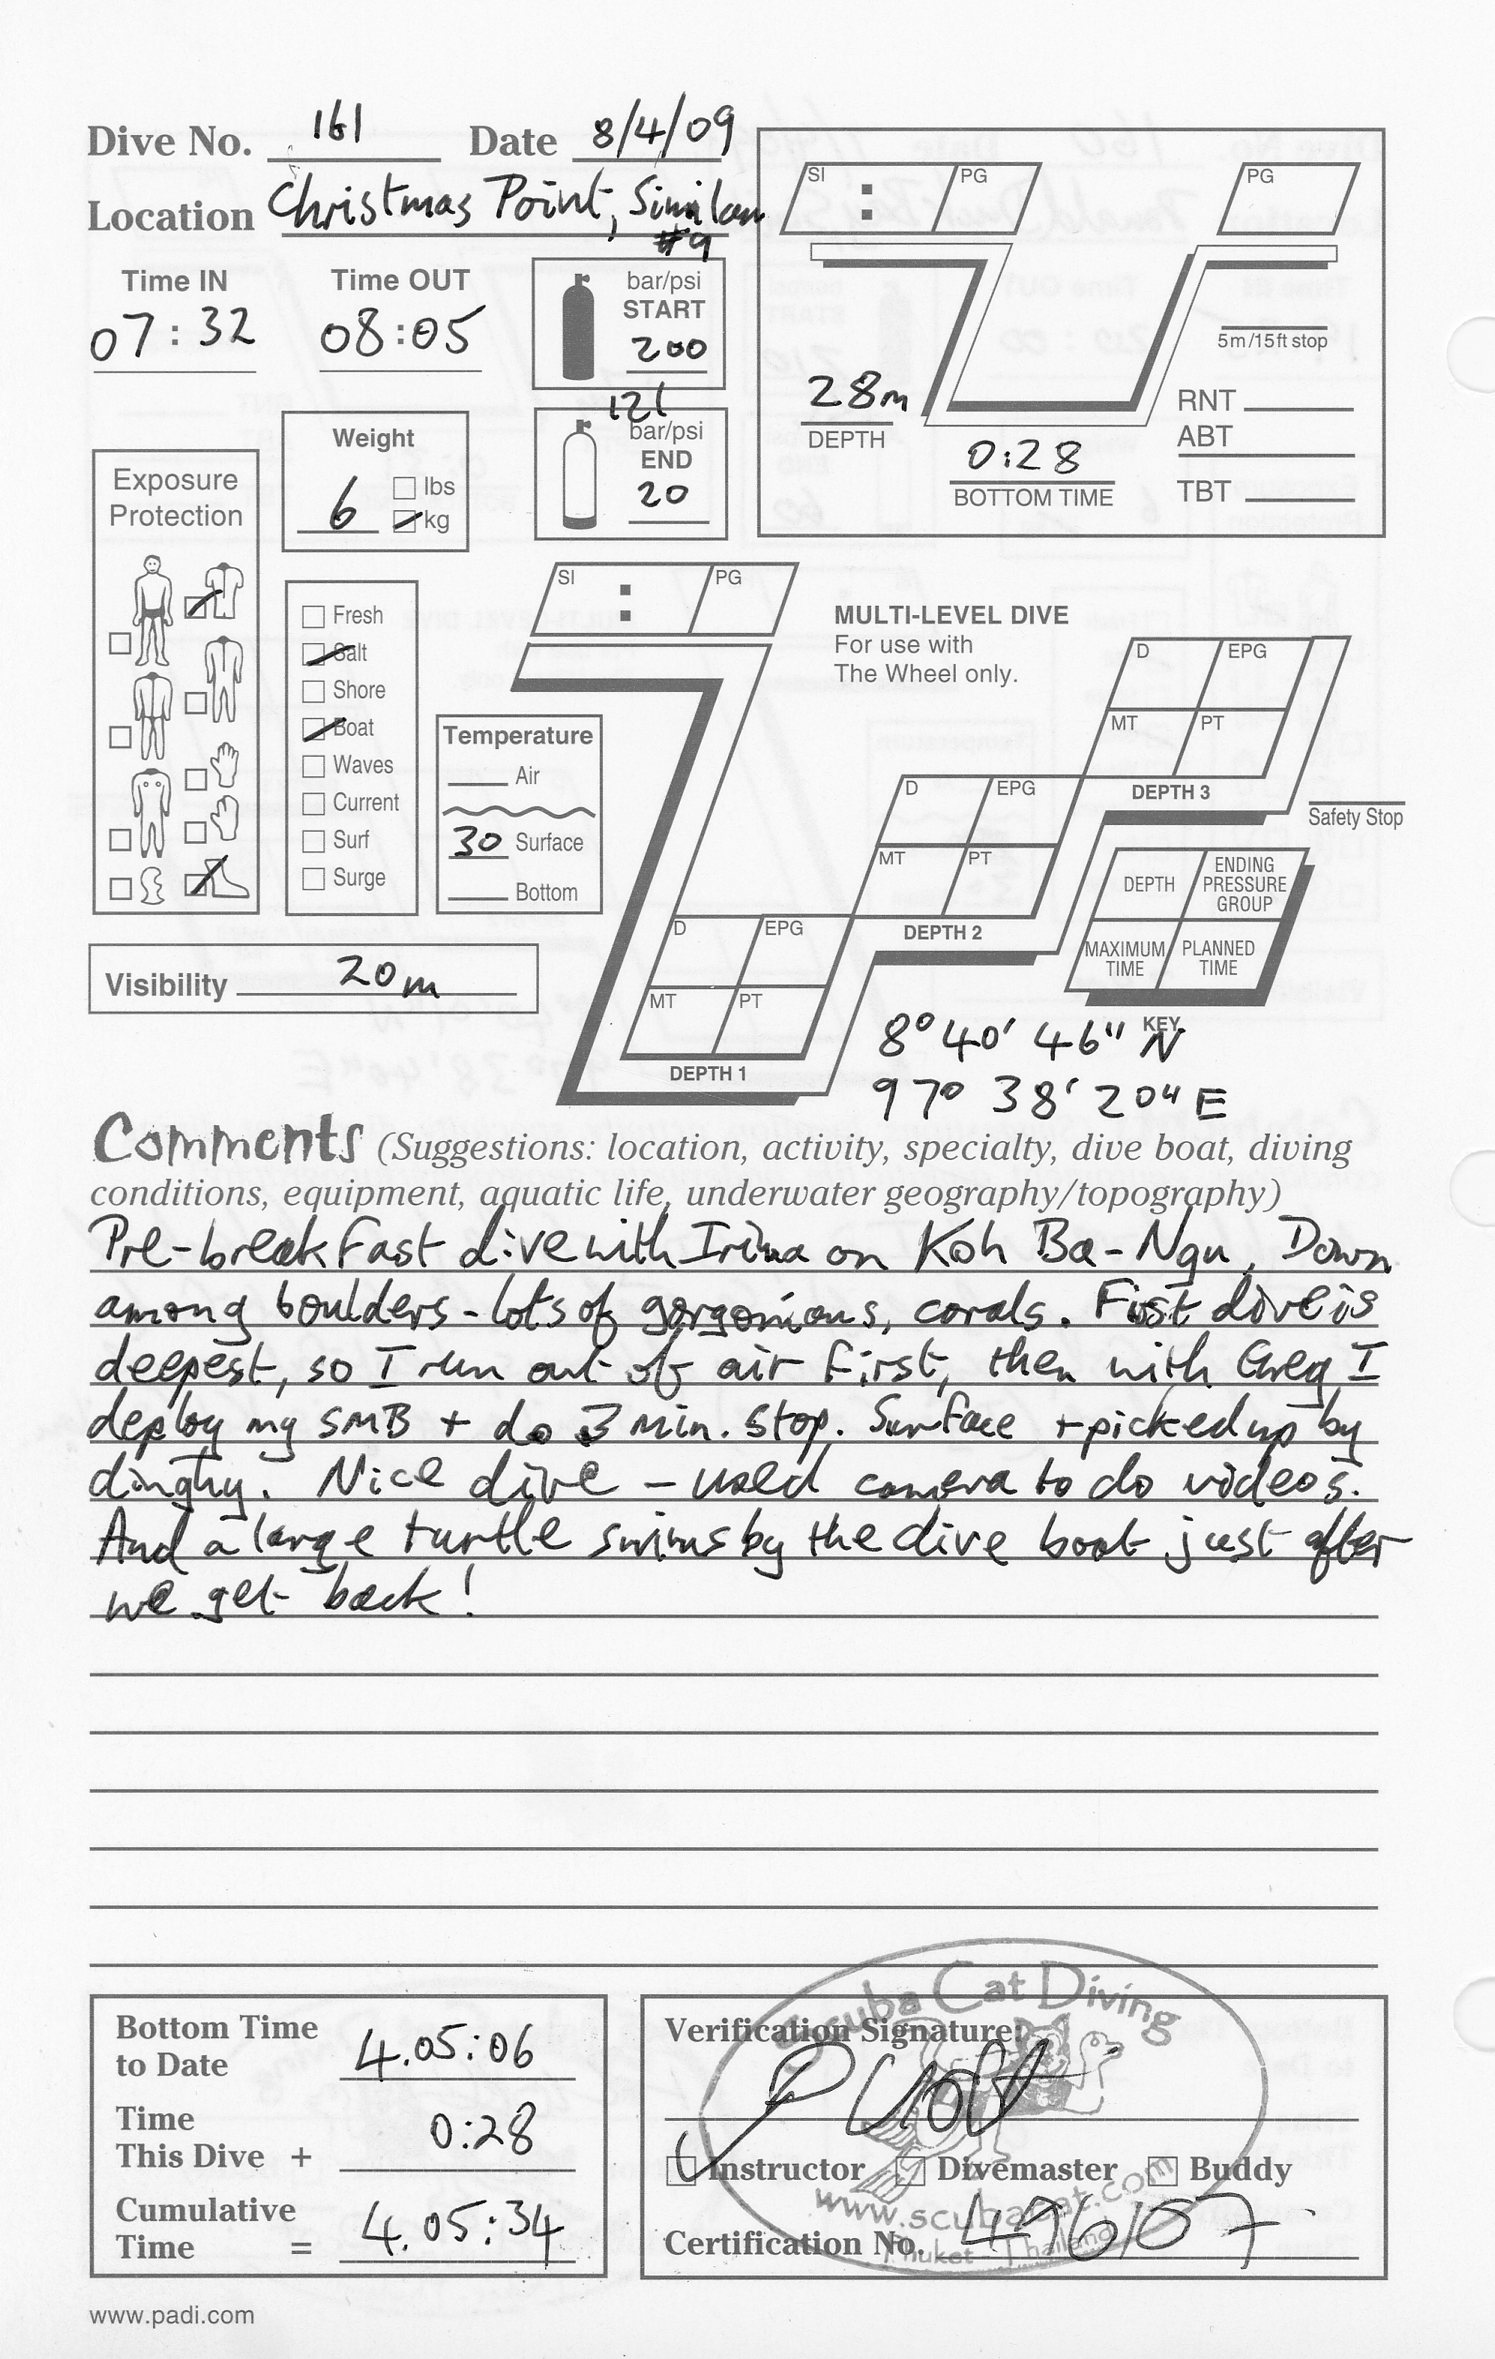 Dive No. 161 Date 8/4/09
Location Christmas Point, Similan
#9
Time IN Time OUT
07:32 08:05
bar/psi
START
200
12l
bar/psi
END
20
Weight
6 lbs
kg
Exposure
Protection
Fresh
Salt
Shore
Boat
Waves
Current
Surf
Surge
Temperature
Air
30 Surface
Bottom
Visibility 20m
SI : PG
PG
5m/15ft stop
28m
DEPTH
0:28
BOTTOM TIME
RNT
ABT
TBT
SI : PG
MULTI-LEVEL DIVE
For use with
The Wheel only.
D EPG
MT PT
DEPTH 3
Safety Stop
D EPG
MT PT
DEPTH 2
D EPG
MT PT
DEPTH 1
DEPTH ENDING PRESSURE GROUP
MAXIMUM TIME PLANNED TIME
KEY
8° 40' 46" N
97° 38' 20" E
Comments (Suggestions: location, activity, specialty, dive boat, diving
conditions, equipment, aquatic life, underwater geography/topography)
Pre-breakfast dive with Irina on Koh Ba-Ngu. Down
among boulders - lots of gorgonians, corals. First dive is
deepest, so I run out of air first, then with Greg I
deploy my SMB + do 3 min. stop. Surface + picked up by
dinghy. Nice dive - used camera to do videos.
And a large turtle swims by the dive boat just after
we get back!
Bottom Time
to Date 4.05:06
Time
This Dive + 0:28
Cumulative
Time = 4.05:34
Scuba Cat Diving
Verification Signature:
Instructor Divemaster Buddy
www.scubacat.com
Certification No. 476107
Phuket - Thailand
www.padi.com